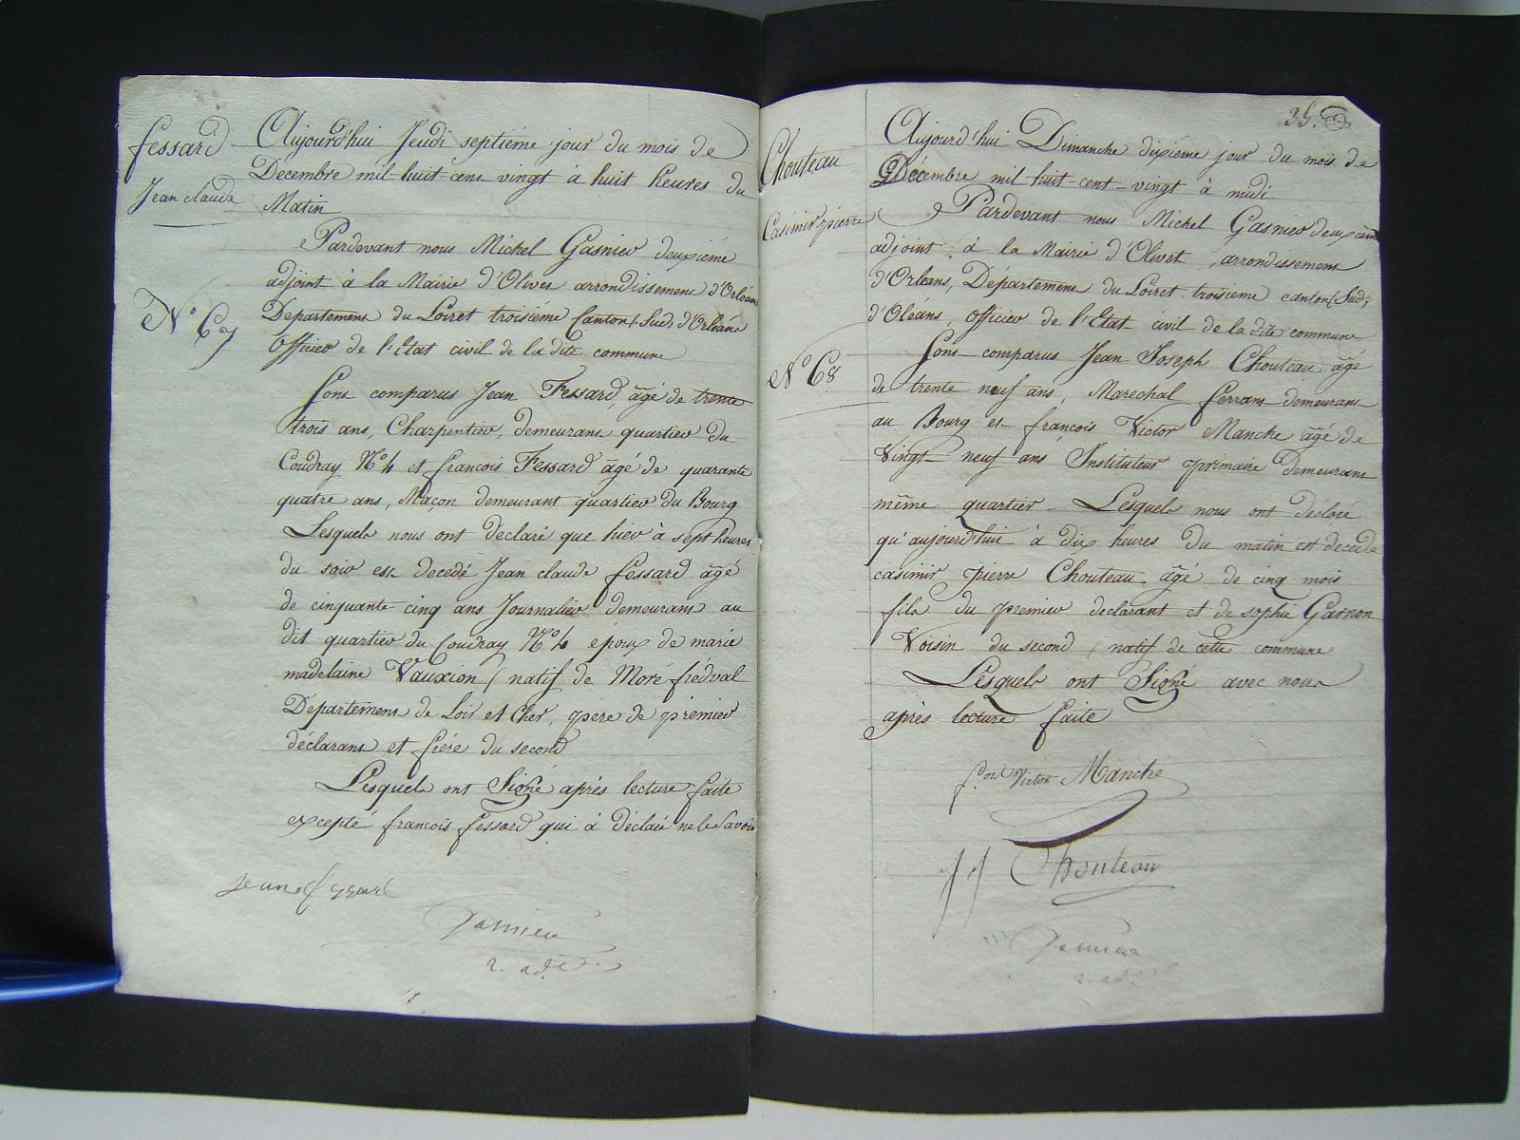 fessard
Jean claude
N° 67
Aujourd'hui Jeudi septième jour du mois de
Decembre mil-huit-cent vingt à huit heures du
Matin
Pardevant nous Michel Gasnier deuxième
adjoint à la Mairie d'Olivet arrondissement d'Orléans
Departement du Loiret troisième Canton (Sud) d'Orléans
officier de l'Etat civil de la dite commune
Sont comparus Jean Fessard, âgé de trente
trois ans, Charpentier, demeurant quartier du
Coudray N° 4 et françois Fessard âgé de quarante
quatre ans, Maçon demeurant quartier du Bourg
Lesquels nous ont declaré que hier à sept heures
du soir est decedé Jean claude fessard âgé
de cinquante cinq ans Journalier demeurant au
dit quartier du Coudray N° 4 époux de marie
madelaine Vauxion, natif de Moré frédval
Departement de Loir et Cher, pere de premier
déclarant et frére du second
Lesquels ont Signé après lecture faite
excepté françois fessard qui à déclaré ne le Savoir
jean fessard
Gasnier
2. adt.
35.
Chouteau
Casimir pierre
N° 68
Aujourd'hui Dimanche dixième jour du mois de
Décembre mil huit-cent-vingt à midi
Pardevant nous Michel Gasnier deuxième
adjoint à la Mairie d'Olivet, arrondissement
d'Orleans, Département du Loiret troisieme canton (Sud)
d'Oléans, officier de l'Etat civil de la dite commune
Sont comparus Jean Joseph Chouteau âgé
de trente neuf ans, Marechal ferrant demeurant
au Bourg et françois Victor Manche âgé de
vingt-neuf ans Instituteur primaire demeurant
même quartier - Lesquels nous ont déclaré
qu'aujourd'hui à dix heures du matin est decedé
casimir pierre Chouteau âgé de cinq mois
fils du premier declarant et de sophie Garnon
Voisin du second, natif de cette commune
Lesquels ont Signé avec nous
après lecture faite
f.ois Victor Manche
JJ Chouteau
Gasnier
2. adt.